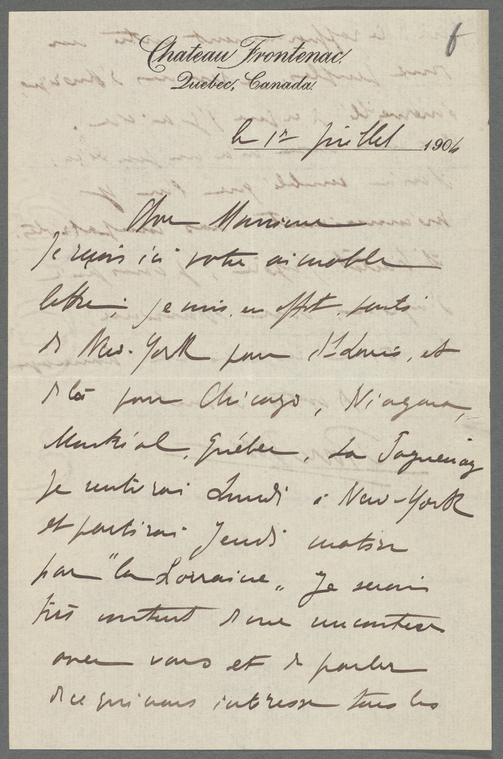 f
Chateau Frontenac
Quebec, Canada.
le 1er juillet 1904
Cher Monsieur
Je reçois ici votre aimable
lettre; je suis, en effet, parti
de New-York pour St Louis, et
de là pour Chicago, Niagara,
Montréal, Québec, Le Saguenay
Je rentrerai Lundi à New-York
et partirai Jeudi matin
par "La Lorraine". Je serais
très content de me rencontrer
avec vous et de parler
de ce qui nous intéresse tous les